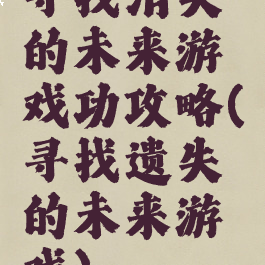 寻找消失
的未来游
戏功攻略(
寻找遗失
的未来游
戏)